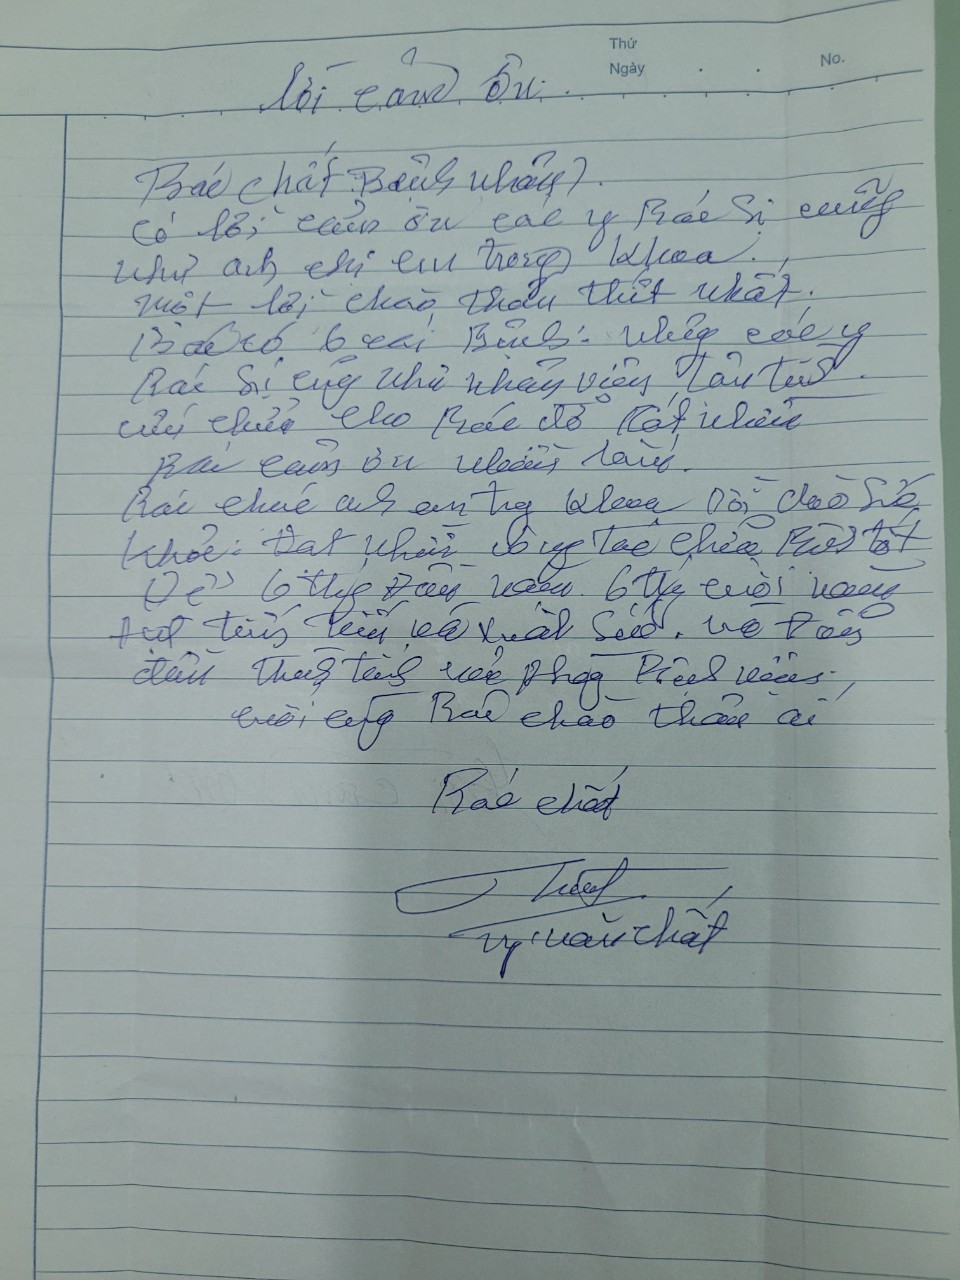 Thứ
Ngày . . No.
Lời cảm ơn.
Bác chất Bệnh nhân.
có lời cảm ơn các y Bác Sị cũng
như anh chị em trong khoa.
một lời chào thân thiết nhất.
Bác có 6 cái Bệnh: nhưng các y
Bác Sị cũng như nhân viên tận tình
cứu chữa cho Bác đỡ rất nhiều
Bác cảm ơn nhiều lắm.
Bác chúc anh em trg khoa lời chào Sức
khỏe: Đạt nhiều công tác chữa Bệnh tốt
6 thg Đầu năm. 6 thg cuối năm
tiến và xuất Sắc. và
thành tích của phòng Bệnh viện.
cuối cùng Bác chào thân ái
Bác chất
Vy văn chất